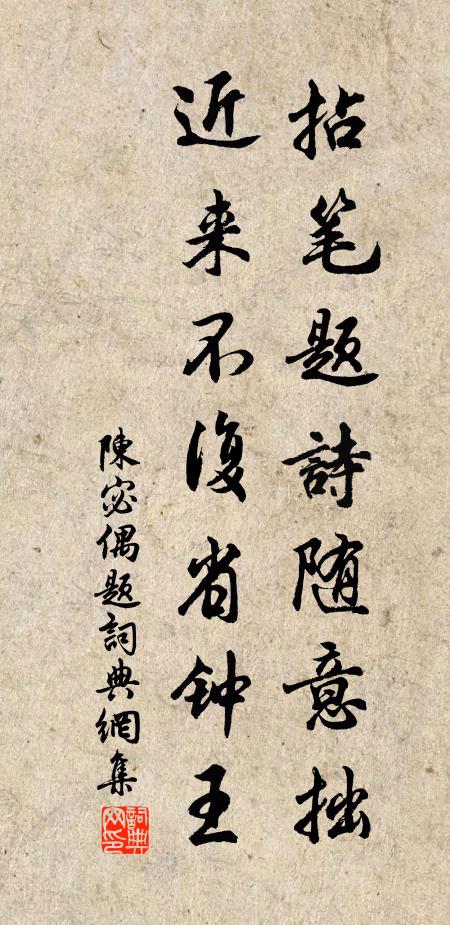 拈笔题詩随意拙
近来不復省钟王
陳宓偶题詞典網集
詞典网印